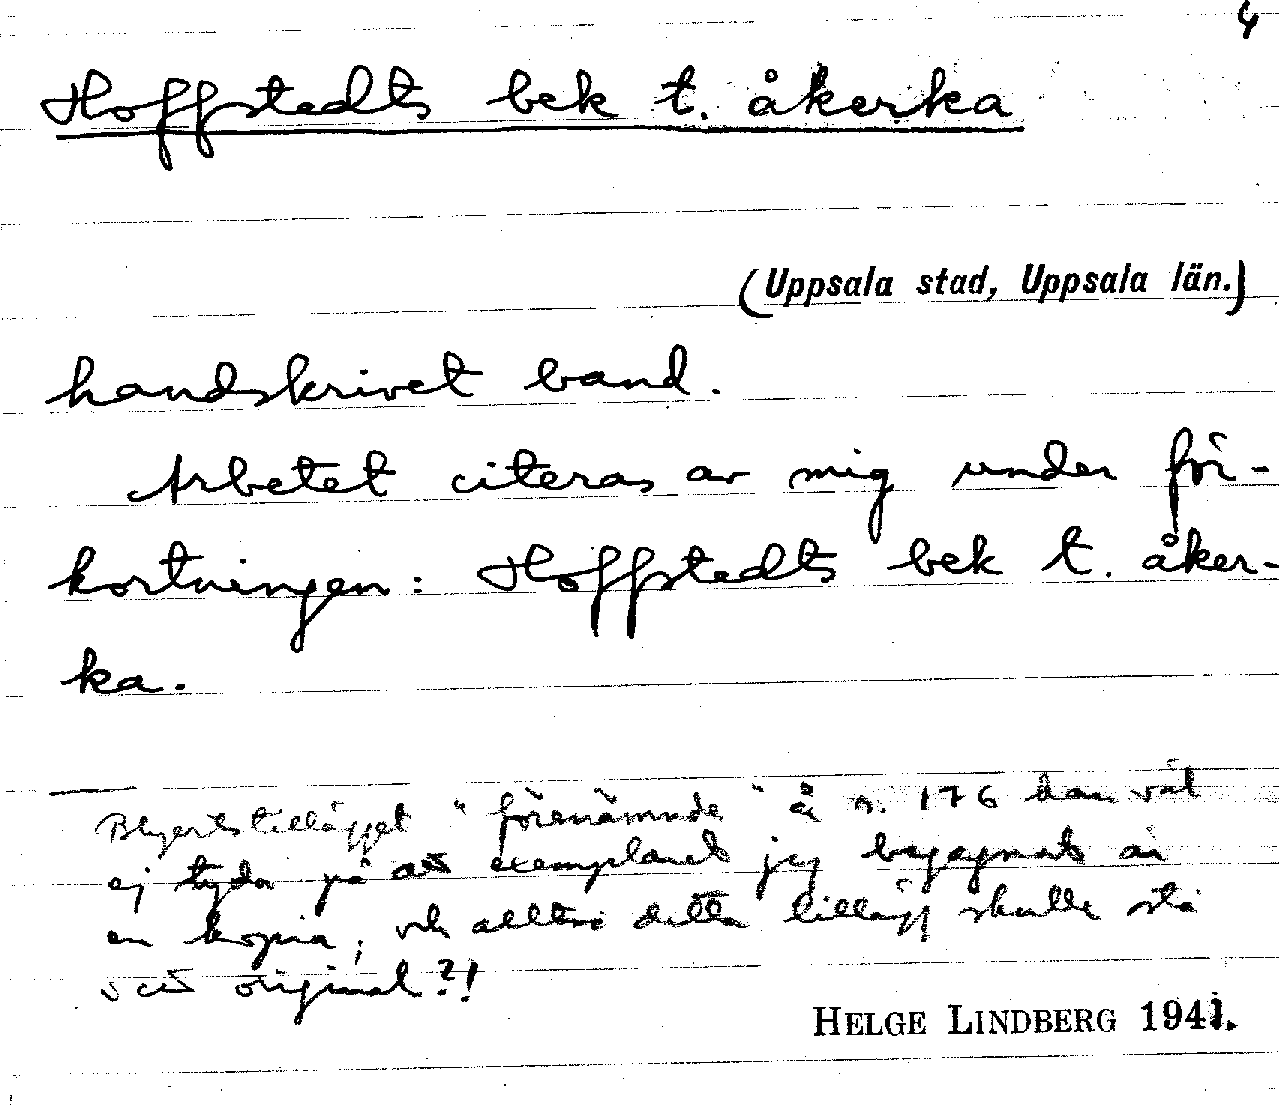 4
Hoffstedts bek t. åkerka
(Uppsala stad, Uppsala län.)
handskrivet band.
Arbetet citeras av mig under för-
kortningen: Hoffstedts bek t. åker-
ka.
Blyertstillägget "förenämnde" å s. 176 kan väl
ej tyda på att exemplaret jag begagnat är
en kopia, och alltså detta tillägg skulle stå
i original?!
HELGE LINDBERG 1941.